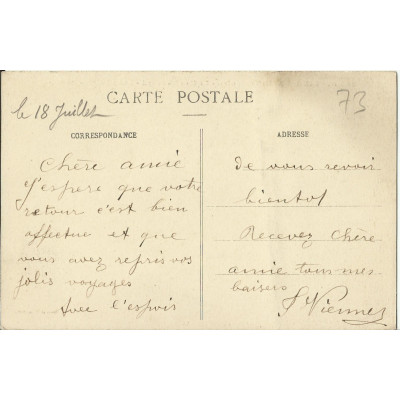 le 18 Juillet
CARTE POSTALE
73
CORRESPONDANCE
Chère amie
J'espere que votre
retour c'est bien
affectue et que
vous avez repris vos
jolis voyages
Avec l'espois
ADRESSE
de vous revoir
bientot
Recevez chère
amie tous mes
baisers